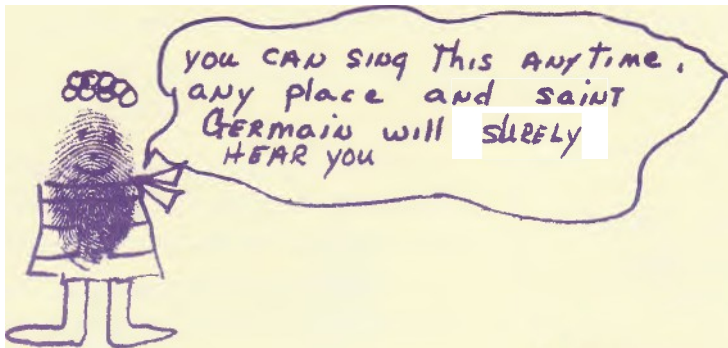 YOU CAN SING This ANYTIME,
ANY PLACE AND SAINT
GERMAIN will SURELY
HEAR YOU